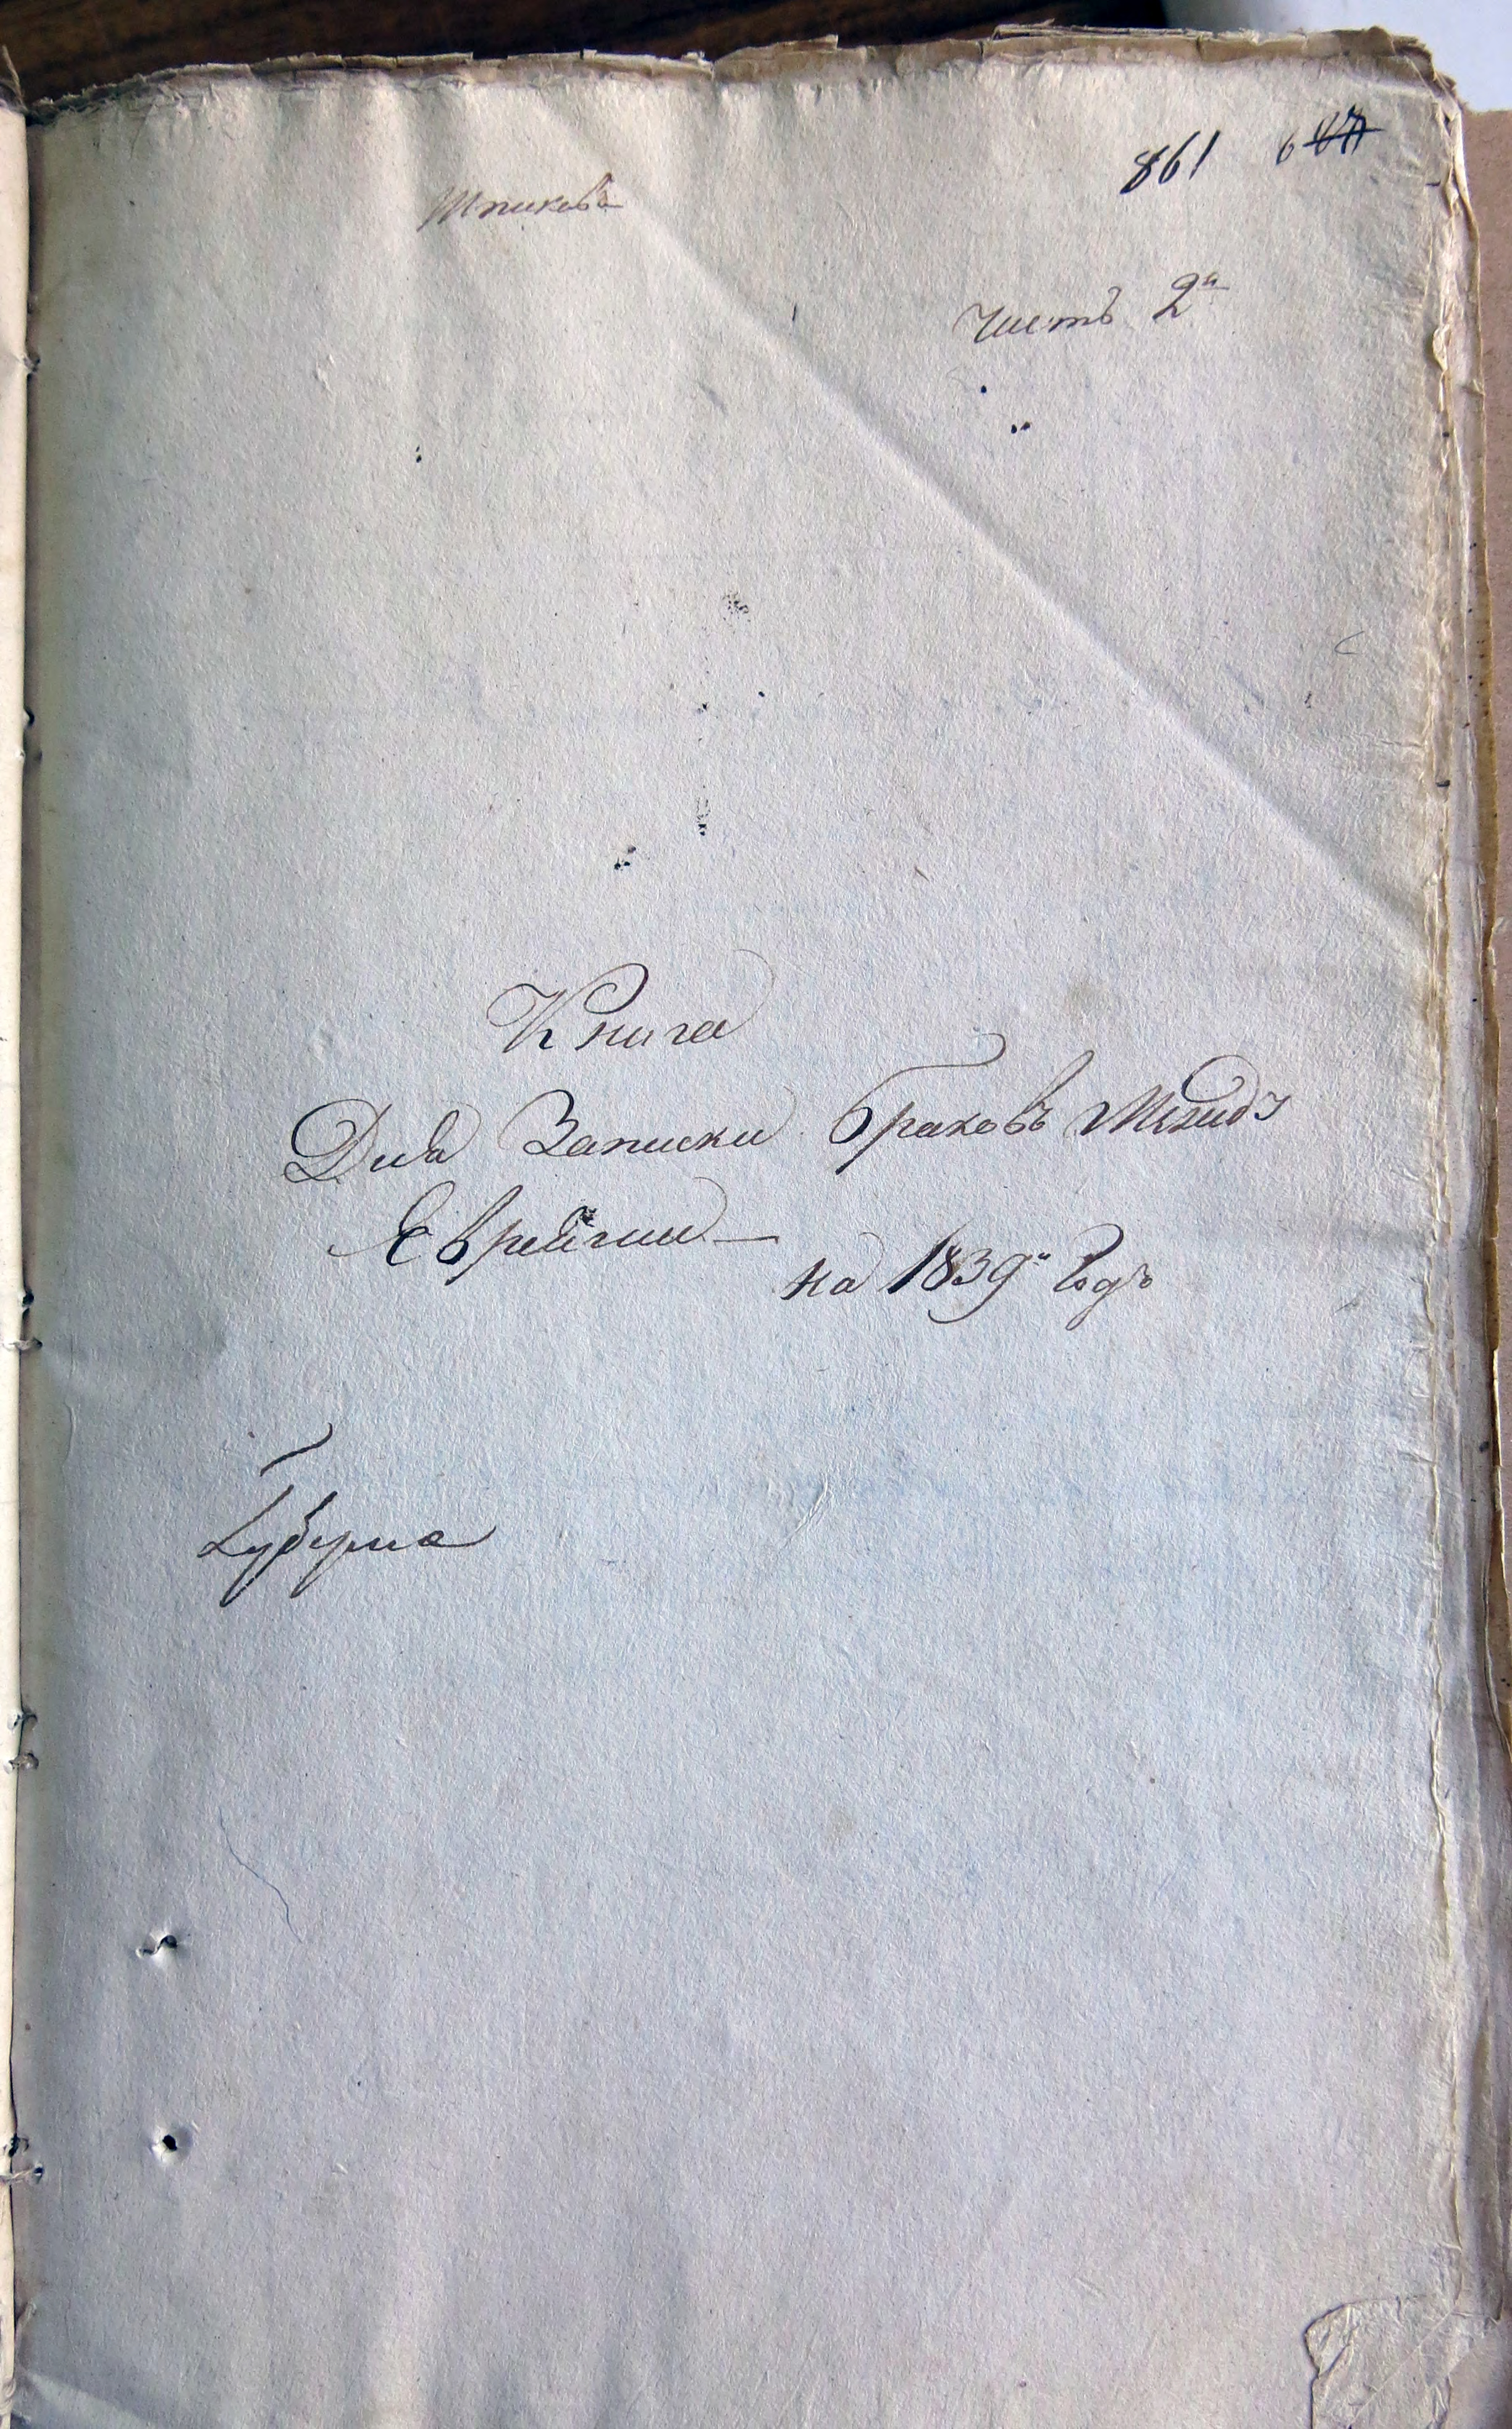 861
Шпиковъ
Часть 2я
Книга
Для Записки браковъ Между
Евреями —
на 1839й Годъ